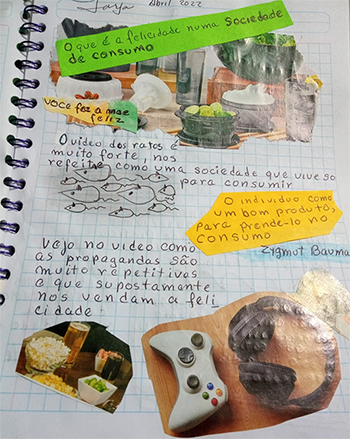 Taya Abril 2022
O que é a felicidade numa sociedade
de consumo
VOCE fez a mae
feliz
O video dos ratos é
muito forte, nos
refeite como uma sociedade que vive so
para consumir
O individuo como
um bom produto,
para prende-lo no
consumo
Zygmut Bauma
Vejo no video como
as propagandas são
muito repetitivas
e que supostamente
nos vendam a feli
cidade.